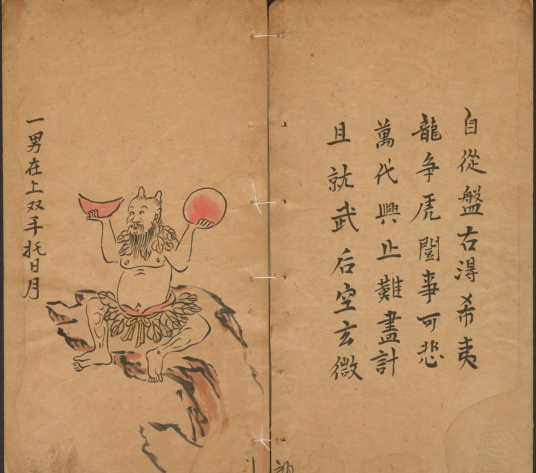 自從盤古得希夷
龍爭虎鬪事可悲
萬代興止難盡計
且就武后空玄微
一男在上双手托日月